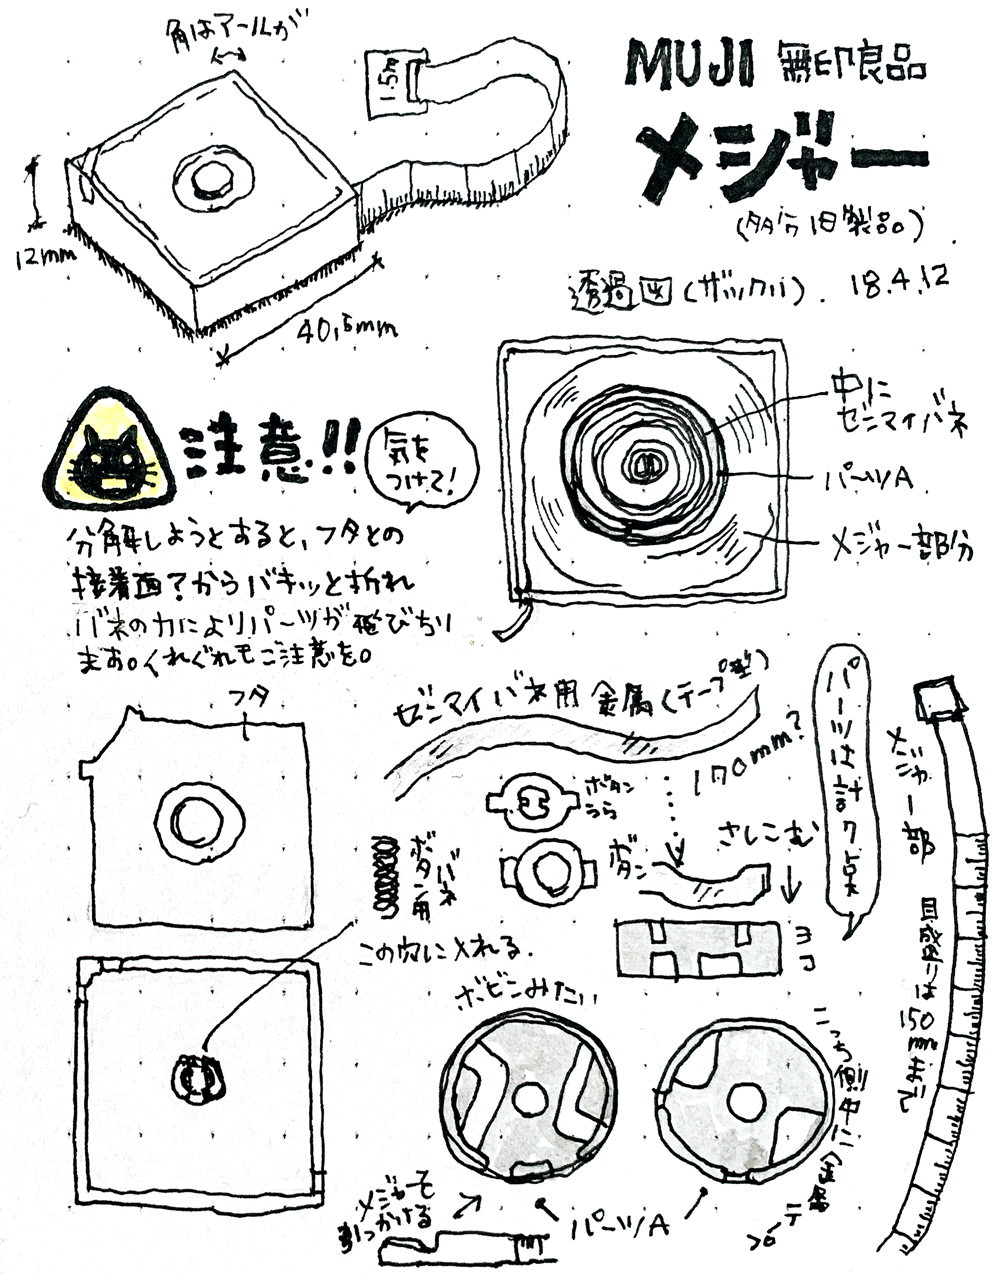 角はアールが
1.5m
MUJI 無印良品
メジャー
(タブン旧製品)
12mm
40,5mm
透過図(ザックリ). 18.4.12
中に
ゼンマイバネ
パーツA
メジャー部分
注意!!
気を
つけて!
分解しようとすると、フタとの
接着面?からバキッと折れ
バネの力によりパーツが飛びちり
ます。くれぐれもご注意を。
フタ
ゼンマイバネ用 金属(テープ型)
170mm?
パーツは計7点
ボタン
うら
ボタン
バネ
ボタン用
さしこむ
ヨコ
メジャー部
目盛りは150mmまで
この穴に入れる.
ボビンみたい
こっち側中に金属テープ
メジャーを
引っかける
パーツA